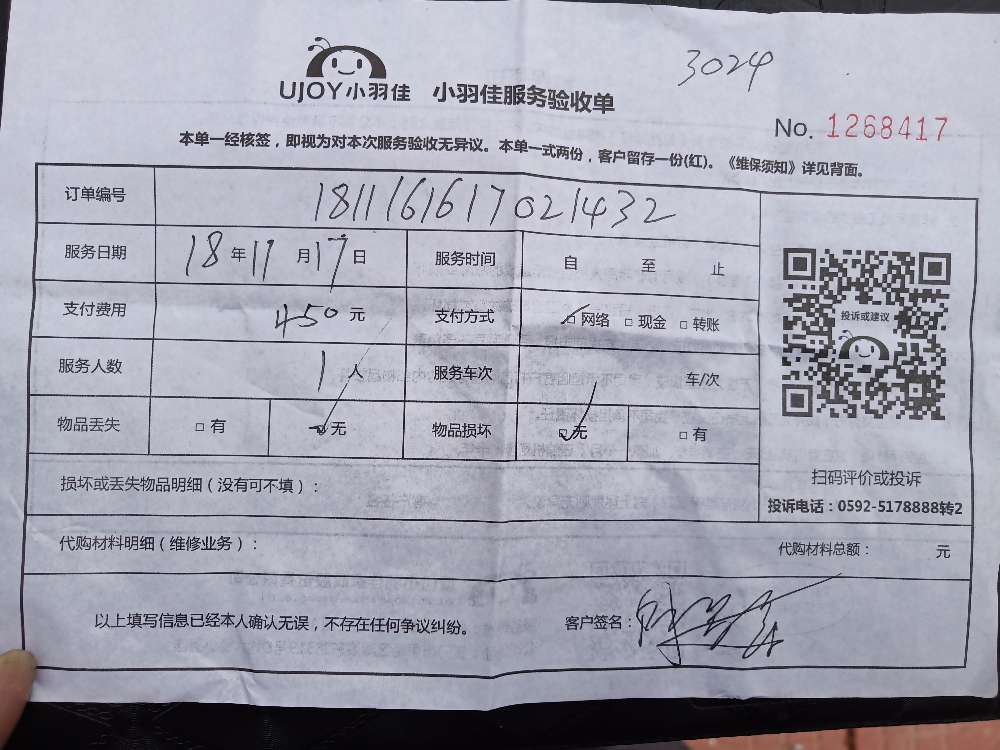 3024
UJOY小羽佳 小羽佳服务验收单
No. 1268417
本单一经核签，即视为对本次服务验收无异议。本单一式两份，客户留存一份(红)。《维保须知》详见背面。
订单编号 1811161617021432
服务日期 18年11月17日 服务时间 自 至 止
支付费用 450元 支付方式 □网络 □现金 □转账
投诉或建议
服务人数 1人 服务车次 车/次
物品丢失 □有 □无 物品损坏 □无 □有
扫码评价或投诉
损坏或丢失物品明细（没有可不填）：
投诉电话：0592-5178888转2
代购材料明细（维修业务）： 代购材料总额： 元
以上填写信息已经本人确认无误，不存在任何争议纠纷。 客户签名：